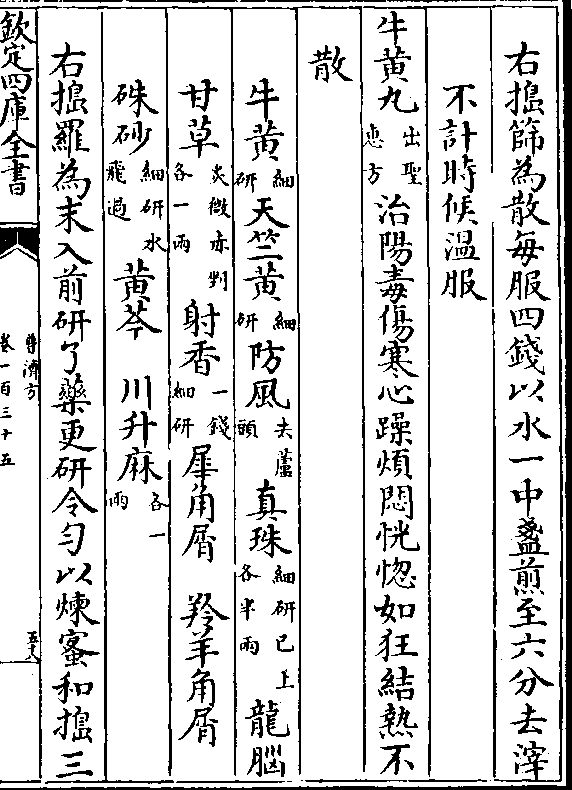 右搗篩為散每服四錢以水一中盞煎至六分去滓
不計時候溫服
牛黃丸出聖惠方治陽毒傷寒心躁煩悶恍惚如狂結熱不
散
牛黃細研天竺黃細研防風去蘆頭真珠細研已上各半兩龍腦
甘草炙微赤剉各一兩射香一錢細研犀角屑 羚羊角屑
硃砂細研水飛過黃芩 川升麻各一兩
右搗羅為末入前研了藥更研令勻以煉蜜和搗三
欽定四庫全書
普濟方
卷一百三十五